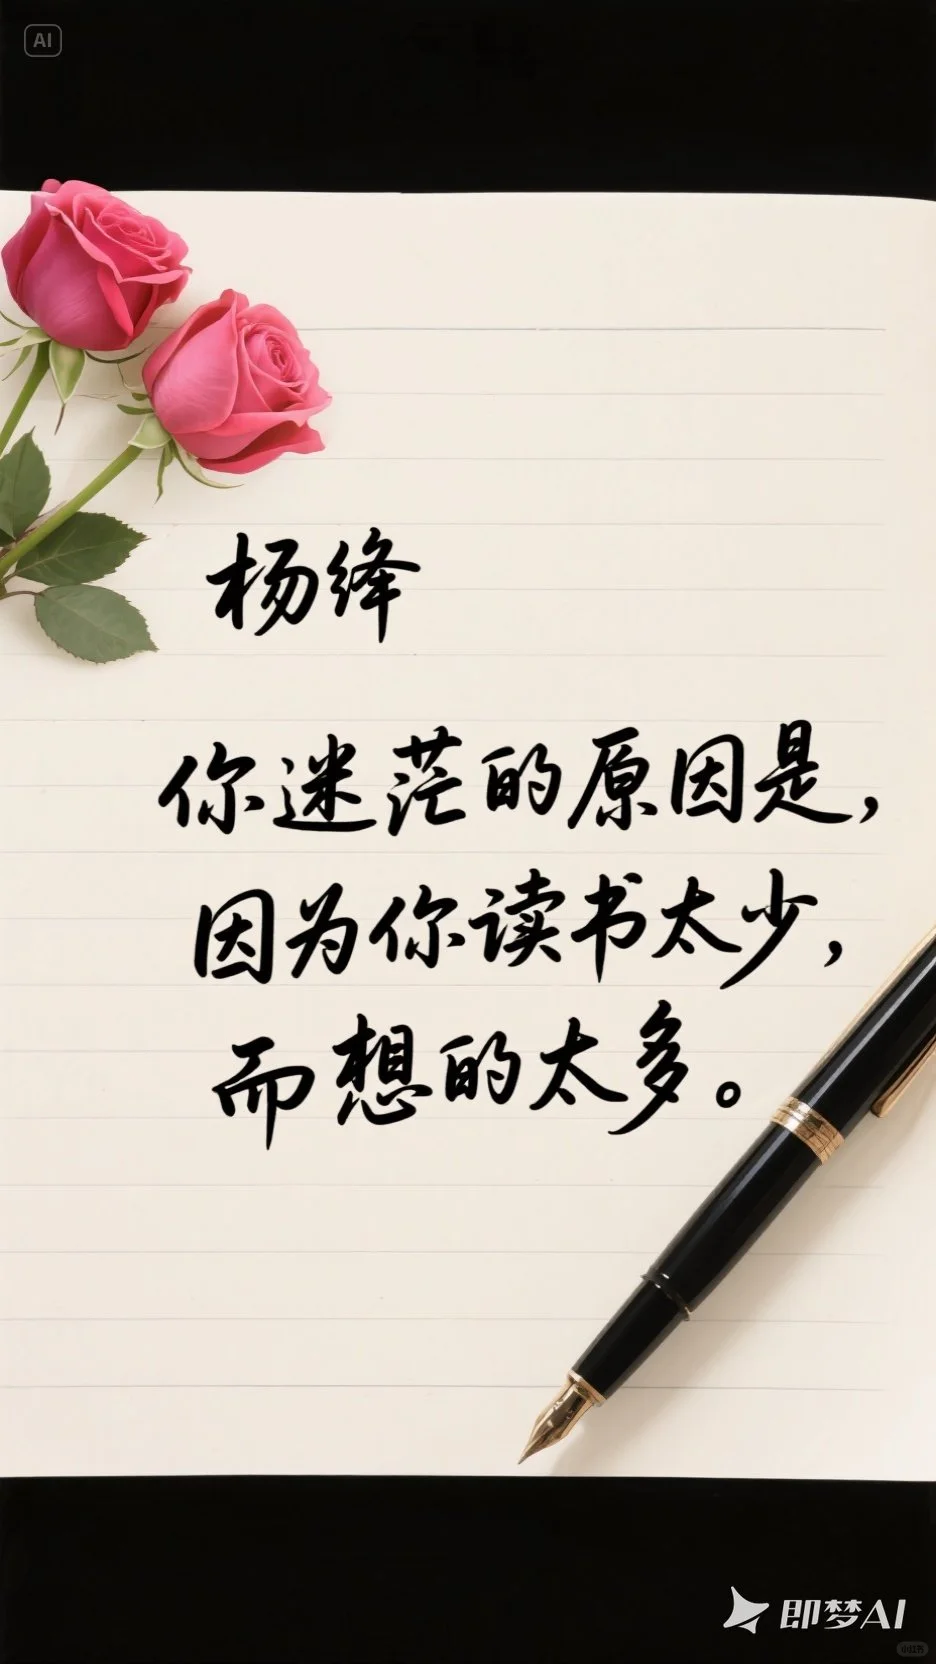 AI
杨绛
你迷茫的原因是，
因为你读书太少，
而想的太多。
即梦AI